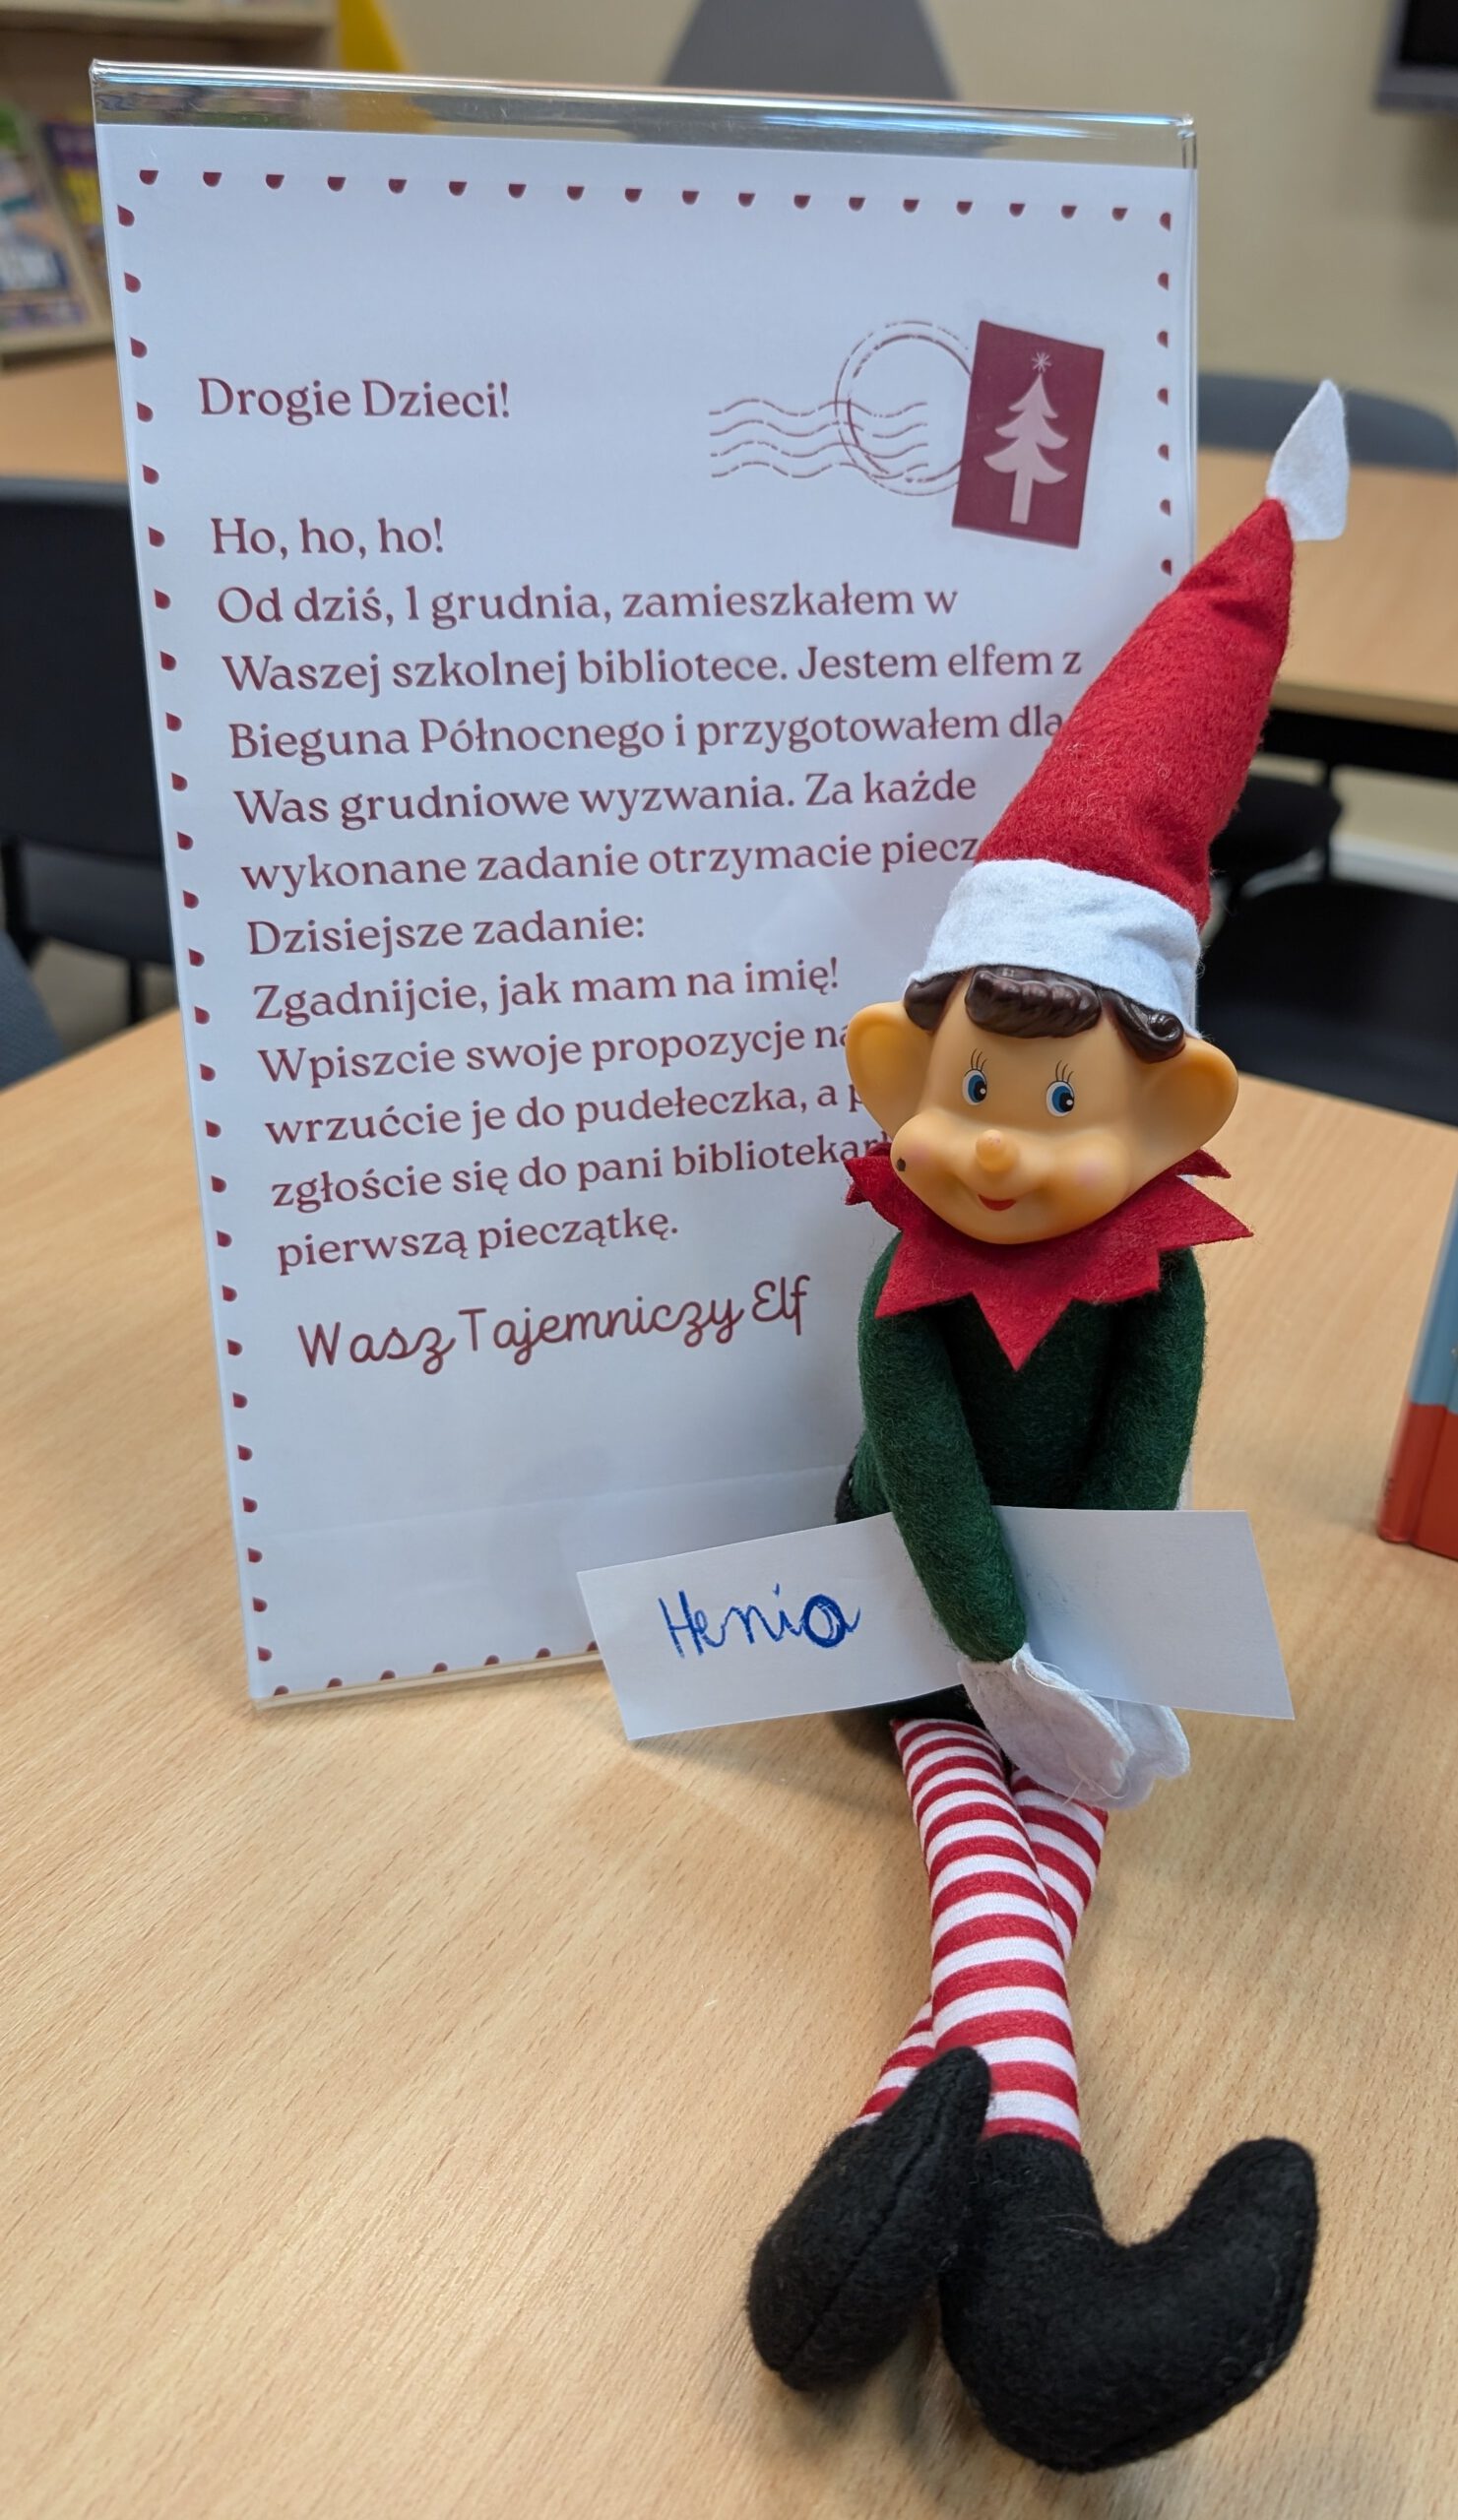 Drogie Dzieci!
Ho, ho, ho!
Od dziś, 1 grudnia, zamieszkałem w
Waszej szkolnej bibliotece. Jestem elfem z
Bieguna Północnego i przygotowałem dla
Was grudniowe wyzwania. Za każde
wykonane zadanie otrzymacie
Dzisiejsze zadanie:
Zgadnijcie, jak mam na imię!
Wpiszcie swoje propozycje
wrzućcie je do pudełeczka, a
zgłoście się do pani
pierwszą pieczątkę.
Wasz Tajemniczy Elf
Henia